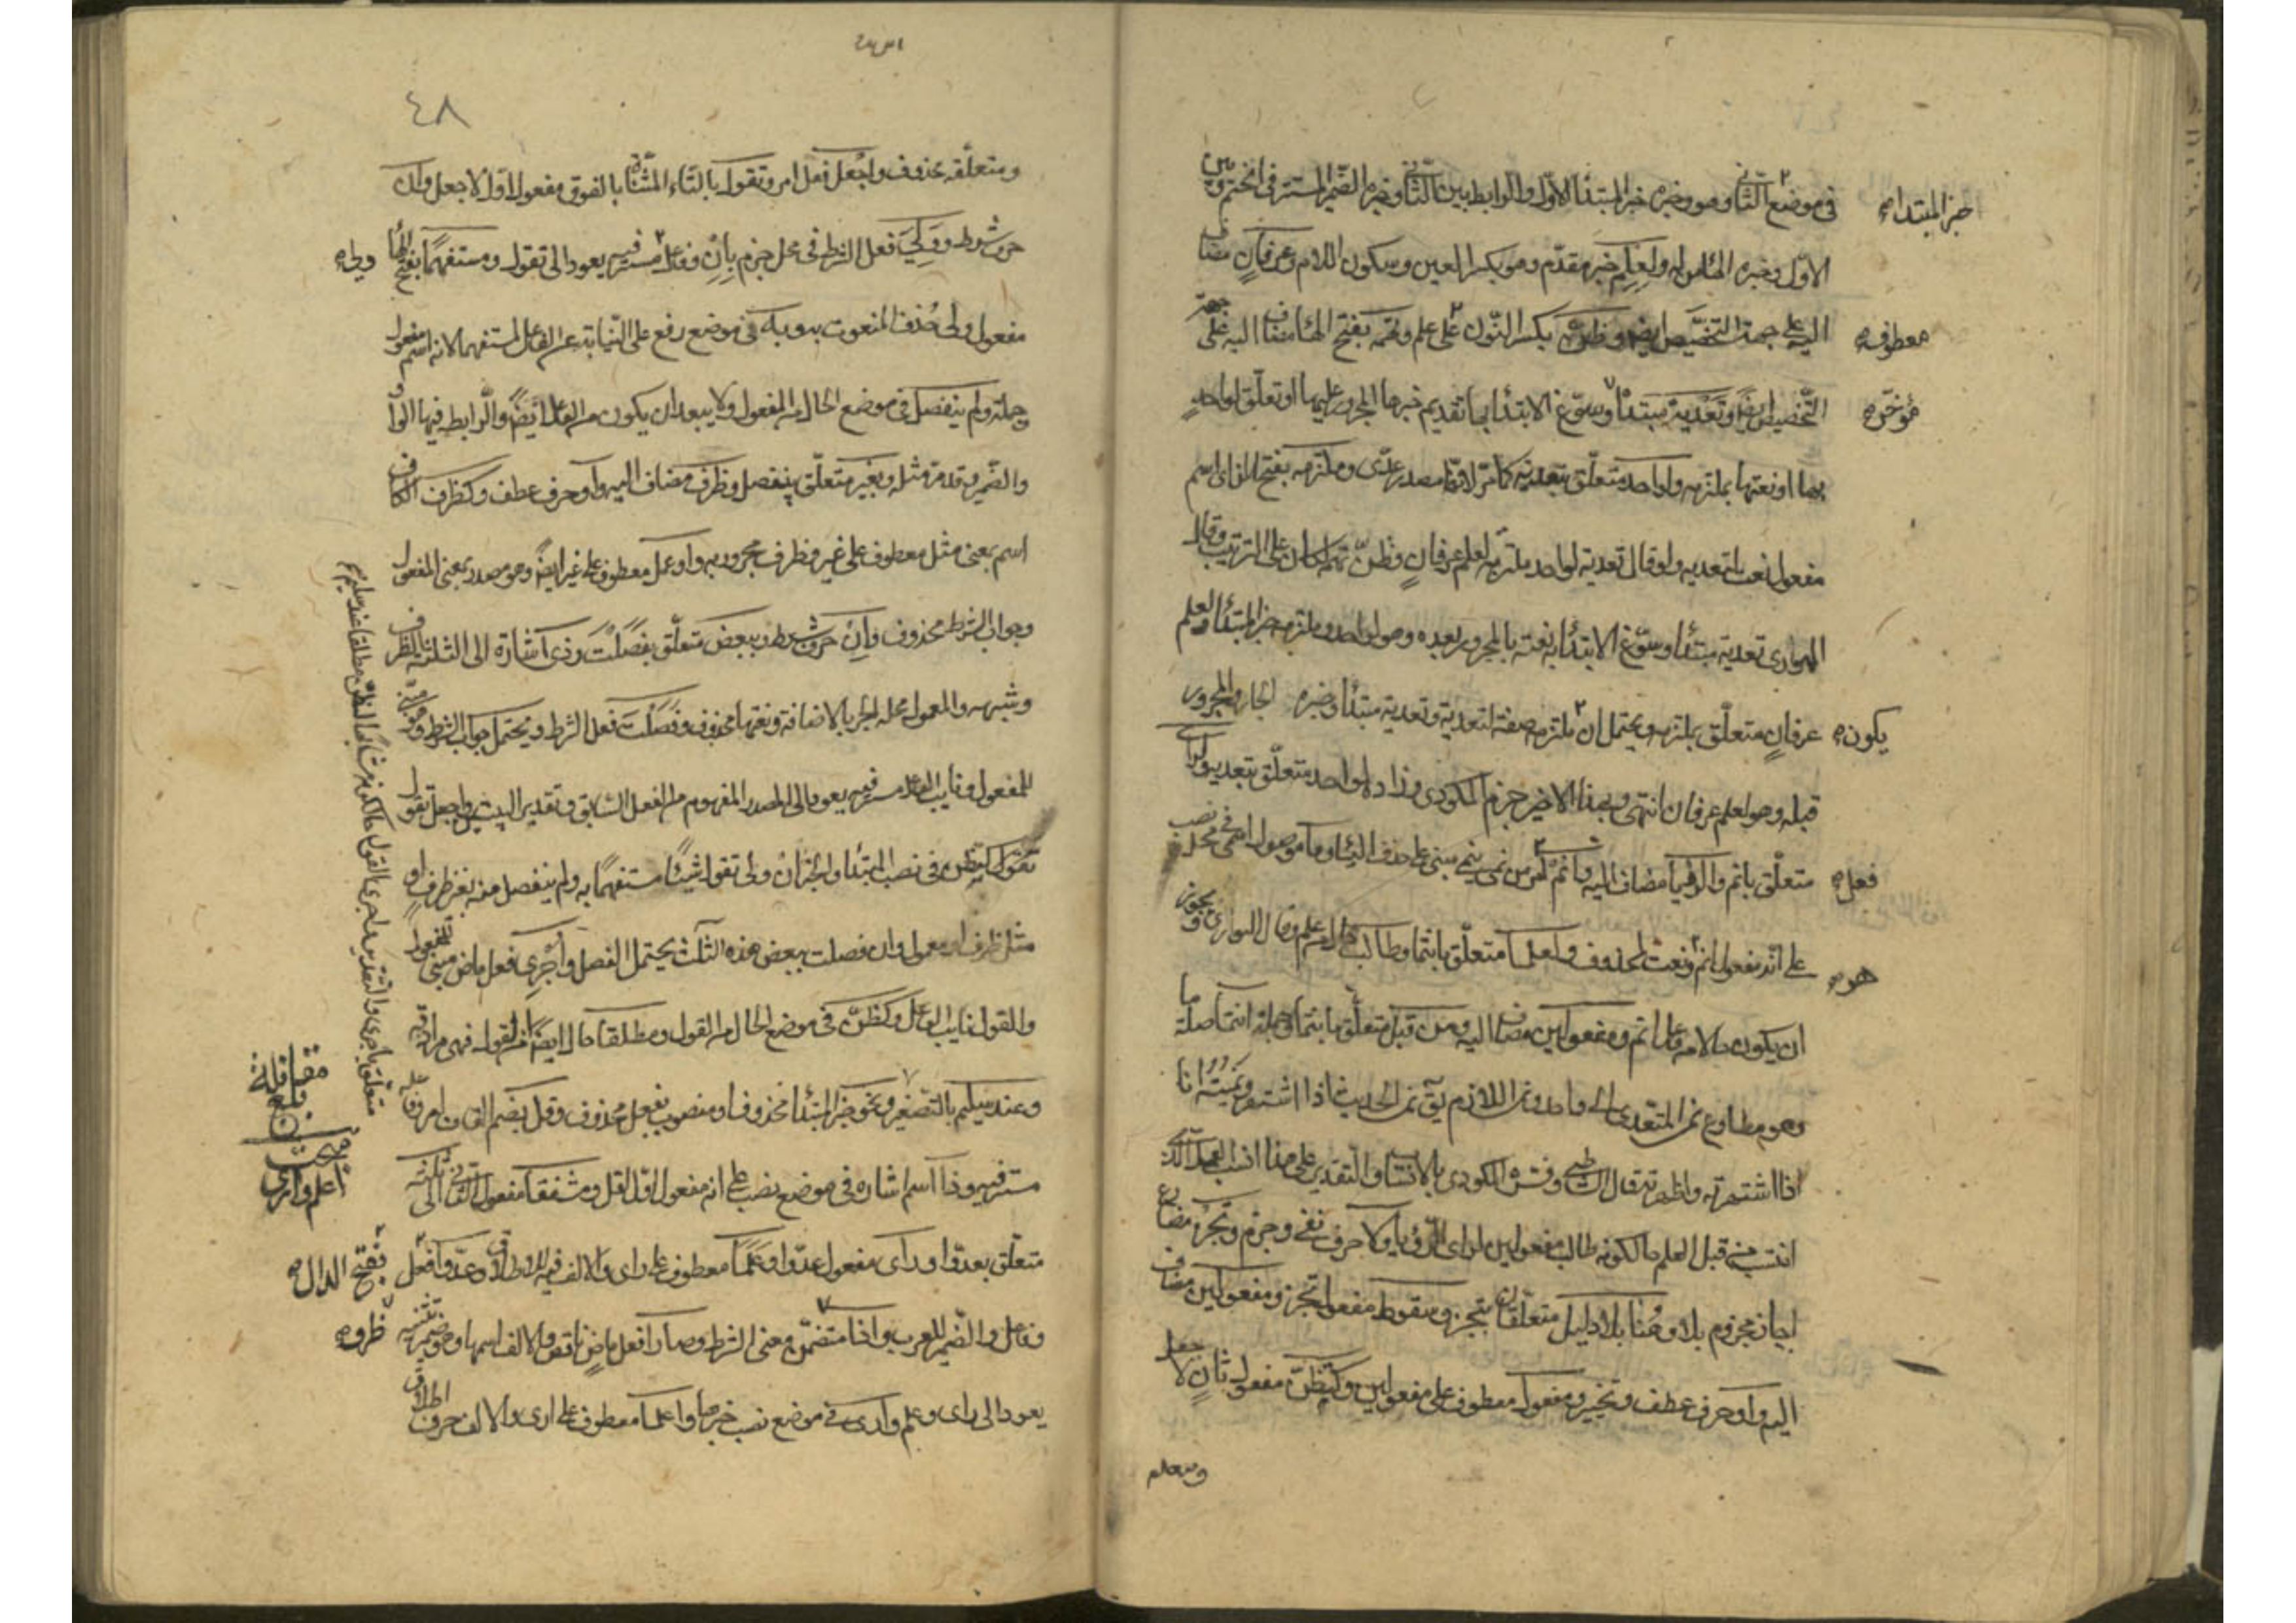 في موضع الثاني وهو وخبره خبر المبتدا الاول والرابط بين الثاني وخبره الضمير المستتر في انحتم وبين
خبر المبتدا صح
الاول وخبره الهاء من له ولعلم خبر مقدم وهو بكسر العين وسكون اللام وعرفان مضاف
اليه على جهة التخصيص ايضا وظن بكسر النون على علم وتهمه بفتح الهاء مضاف اليه على جهة
معطوف صح
التخصيص ايضا وتعدية مبتدأ وسوغ الابتدا بها تقديم خبرها المجرور عليها او تعلق لواحد
مؤخر صح
بها او نعتها بملتزمه ولواحد متعلق بتعدية كما مر لانها مصدر عدى وملتزمه بفتح الزاي اسم
مفعول نعت لتعديه ولو قال تعدية لواحد ملتزمه لعلم عرفان وظن تهمه لكان على الترتيب وقال
الهواري تعدية مبتدأ وسوغ الابتدأ به نعته بالمجرور بعده وهو لواحد وملتزمه خبر المبتدأ ولعلم
عرفان متعلق بملتزمه ويحتمل ان ملتزمه صفة لتعدية وتعدية مبتدأ وخبره الجار والمجرور
يكون صح
قبله وهو لعلم عرفان انتهى وبهذا الاخير جزم المكودي وزاد ولواحد متعلق بتعدية ولرأى
متعلق بانم والرؤيا مضاف اليه وانم امر من نمى ينمى مبنى على حذف الياء وما موصول اسمي في محل نصب
فعل صح
على انه مفعول انم ونعت لمحذوف ولعلما متعلق بانتما وطالب حال من علم وقال الهواري ويجوز
هو صح
ان يكون حالا من فاعل انم ومفعولين مضاف اليه ومن قبل متعلق بانتما وجملة انتما صلة ما
وهو مطاوع نمى المتعدى الى واحد ونمى اللازم يق نمى الحديث اذا اشتهر ونميته انا
اذا اشتهرته واظهرته قال الشاطبي وفسره المكودي بالانتساب والتقدير على هذا انسب للعمل الذي
انتسب من قبل لعلم حالكونه طالب مفعولين لراى الرؤيا ولا حرف نفي وجزم وتجز مضارع
اجاز مجزوم بلا وهنا بلا دليل متعلقان بتجز وسقوط مفعول تجز ومفعولين مضاف
اليه واو حرف عطف وتخيير ومفعول معطوف على مفعولين وكتظن مفعول ثان لاجعل
ومتعلقه
٤٨
ومتعلقه محذوف واجعل فعل امر وتقول بالتاء المثناة بالفوق مفعول اول لاجعل وان
حرف شرط وولي فعل الشرط في محل جزم بان وفاعله مستتر فيه يعود الى تقول ومستفهما بفتح الهاء
مفعول ولى حذف المنعوت به وبه في موضع رفع على النيابة عن الفاعل لمستفهما لانه اسم مفعول
وجملة ولم ينفصل في موضع الحال من المفعول ولا يبعد ان يكون من الفاعل ايضا والرابط فيها الواو
والضمير وقد مر مثله وبغير متعلق بينفصل وظرف مضاف اليه واو حرف عطف وكظرف الكاف
اسم بمعنى مثل معطوف على غير وظرف مجرور به واو عمل معطوف على غير ايضا وهو مصدر بمعنى المفعول
وجواب الشرط محذوف وان حرف شرط وببعض متعلق بفصلت وذي اشارة الى الثلثة الظرف
وشبهه والمعمول محله الجر بالاضافة ونعتها محذوف وفصلت فعل الشرط ويحتمل جواب الشرط وهو مبني
للمفعول ونايب الفاعل مستتر فيه يعود الى المصدر المفهوم من الفعل السابق وتقدير البيتين واجعل تقول
كتظن في نصب المبتدا والخبر ان ولى تقول شيئا مستفهما به ولم ينفصل منه بغير ظرف او
مثل ظرف او معمول وان فصلت ببعض هذه الثلث يحتمل الفصل واجرى فعل ماض مبنى للمفعول
والقول نايب الفاعل وكظن في موضع الحال من القول ومطلقا حال ايضا من القول فهى مرادفة
وعند سليم بالتصغير ونحو خبر المبتدا محذوف او منصوب بفعل محذوف وقل بضم القاف امر وفاعله
مستتر فيه وذا اسم اشارة في موضع نصب على انه مفعول اول لقل ومشفقا مفعول ثاني الى ثلثة
متعلق بعدوا وراى مفعول عدوا وعلما معطوف على راى والالف فيه للاطلاق وعدوا فعل
بفتح الدال صح
وفاعل والضمير للعرب واذا متضمن معنى الشرط وصارا فعل ماض ناقص والالف اسمها وهو ضمير تثنية
ظرف صح
يعود الى راى وعلم وارى في موضع نصب خبرها واعلما معطوف على ارى والالف حرف اطلاق
متعلق باجرى والتقدير واجرى القول حالكونه مشابها لظن مطلقا عند سليم صح
بلغ
مقابلة
مبحث
اعلم وارى